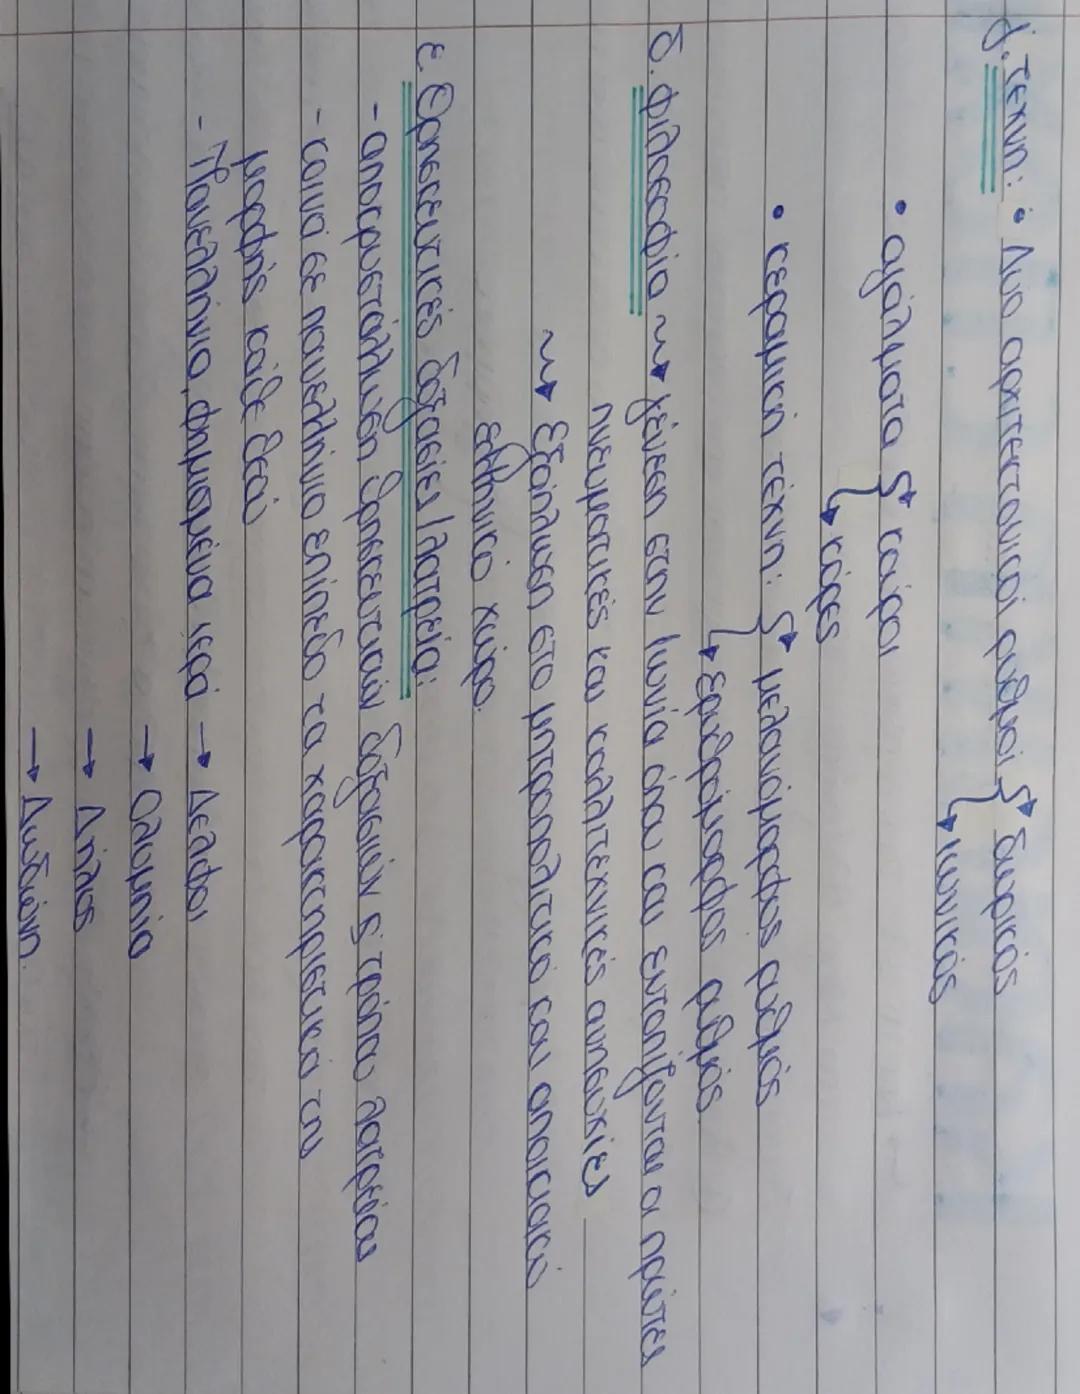 γ. τεχνη: • Δυο αρχιτεκτονικοί ρυθμοί → δωρικός
→ ιωνικός
• αγάλματα → κούροι
→ κόρες
• κεραμική τέχνη: → μελανόμορφος ρυθμός
→ ερυθρόμορφος ρυθμός.
δ. φιλοσοφία ~→ γένεση στην Ιωνία όπου και εντοπίζονται οι πρώτες
πνευματικές και καλλιτεχνικές ανησυχίες
~→ εξάπλωση στο μητροπολιτικό και αποικιακό
ελληνικό χώρο.
ε. Θρησκευτικές δοξασίες / λατρεία:
- αποκρυστάλλωση θρησκευτικών δοξασιών & τρόπου λατρείας
- κοινά σε πανελλήνιο επίπεδο τα χαρακτηριστικά της
μορφής κάθε θεού
- Πανελλήνια, φημισμένα ιερά → Δελφοι
→ Ολυμπία
→ Δήλος
→ Δωδώνη.